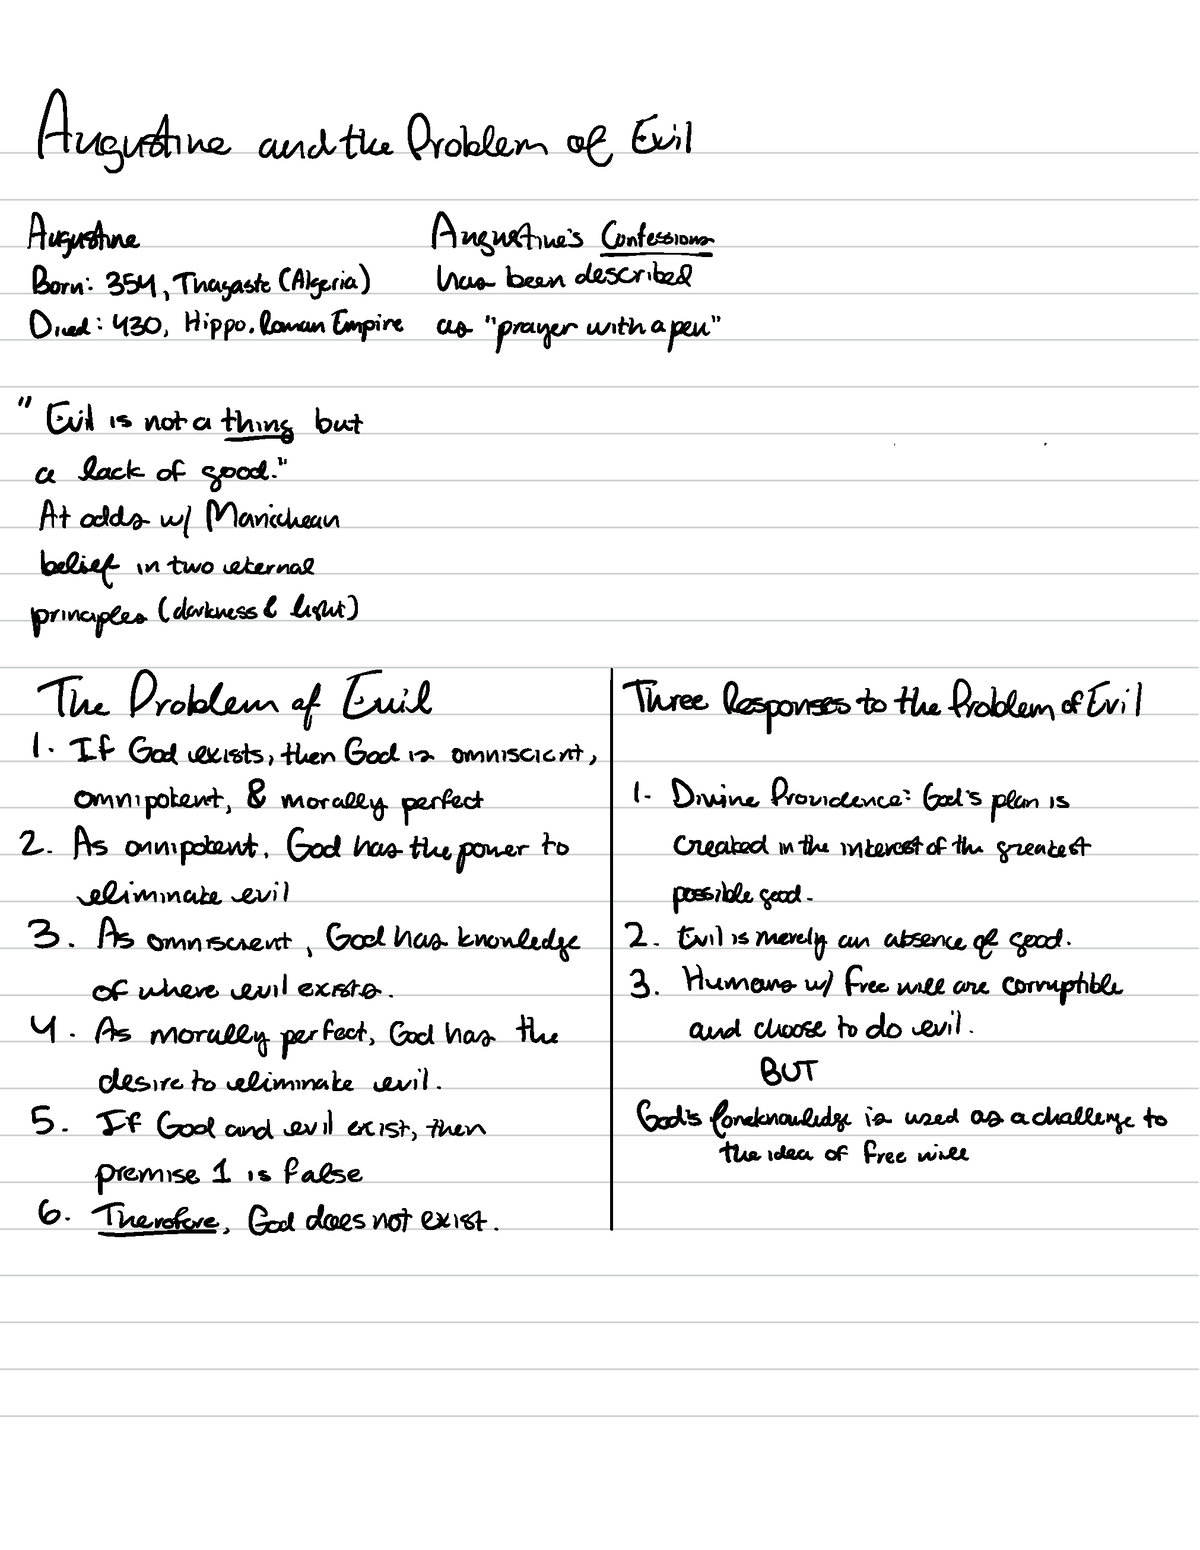 Augustine and the Problem of Evil
Augustine
Born: 354, Thagaste (Algeria)
Died: 430, Hippo, Roman Empire
Augustine's Confessions
has been described
as "prayer with a pen"
"Evil is not a thing but
a lack of good."
At odds w/ Manichean
belief in two eternal
principles (darkness & light)
The Problem of Evil
1. If God exists, then God is omniscient,
omnipotent, & morally perfect
2. As omnipotent, God has the power to
eliminate evil
3. As omniscient, God has knowledge
of where evil exists.
4. As morally perfect, God has the
desire to eliminate evil.
5. If God and evil exist, then
premise 1 is false
6. Therefore, God does not exist.
Three Responses to the Problem of Evil
1. Divine Providence: God's plan is
created in the interest of the greatest
possible good.
2. Evil is merely an absence of good.
3. Humans w/ free will are corruptible
and choose to do evil.
BUT
God's foreknowledge is used as a challenge to
the idea of free will